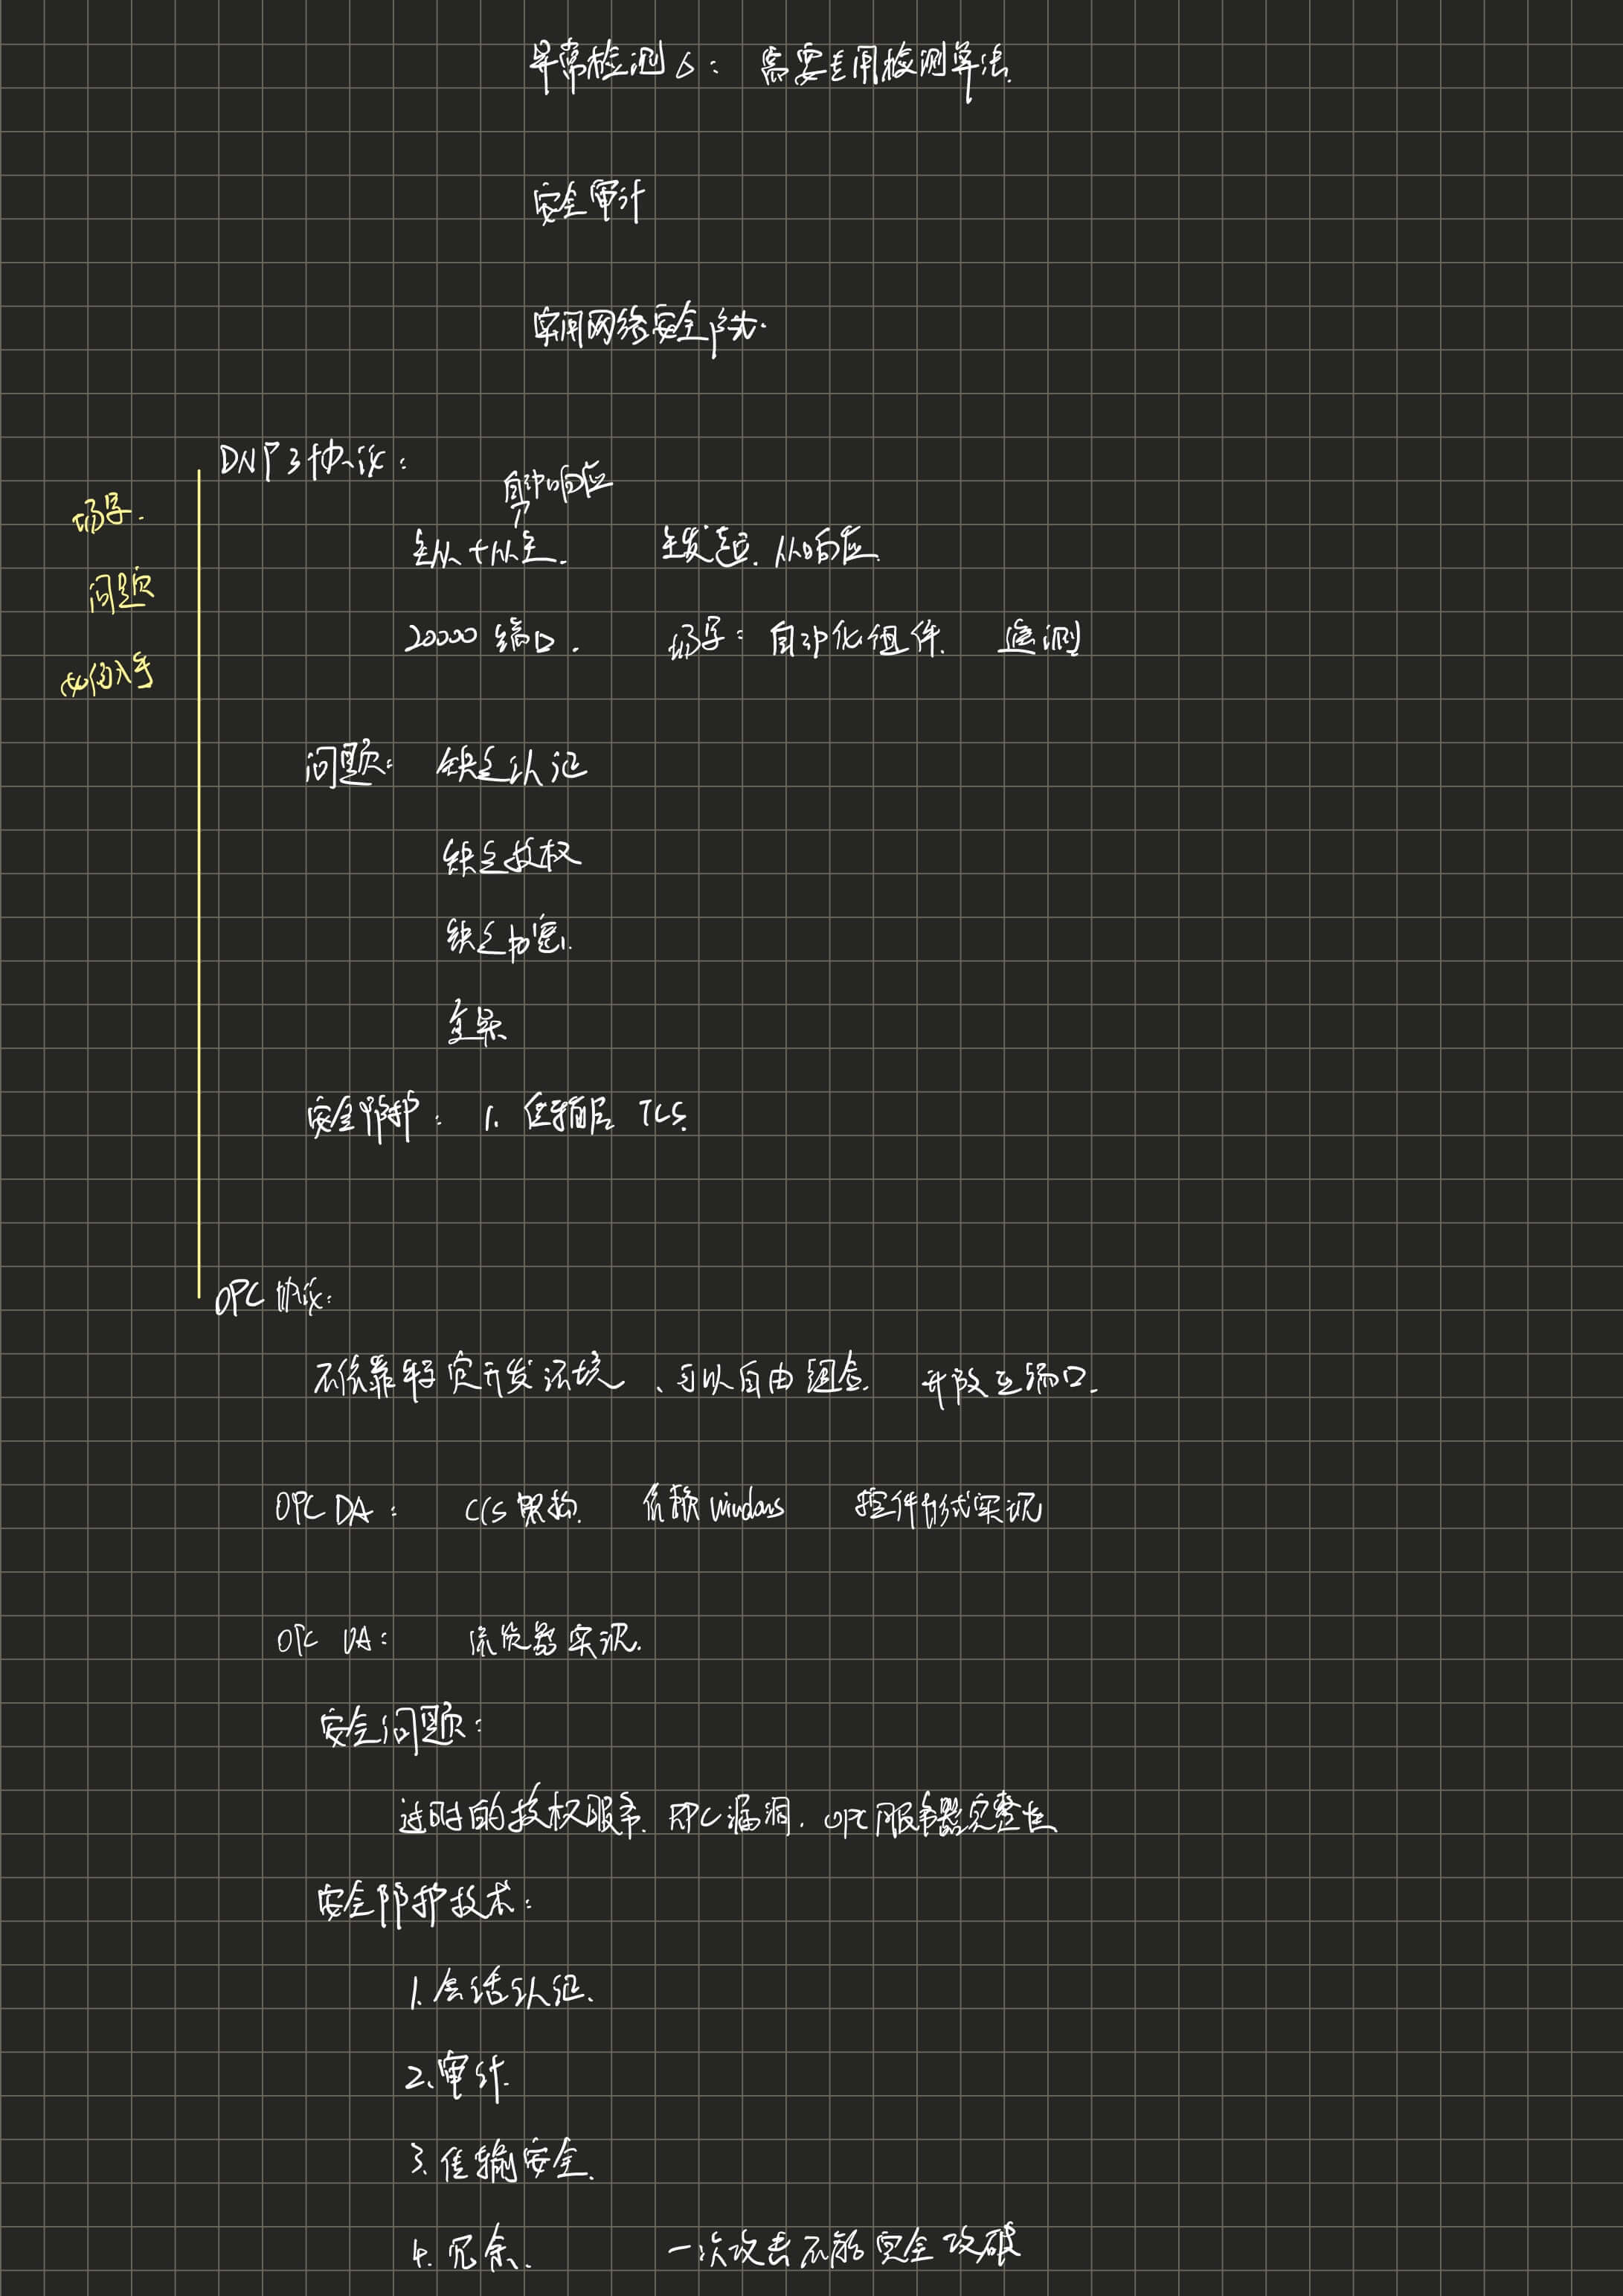 异常检测：需要专用检测算法.
安全审计
实用网络安全防火.
DNP3协议：
自动响应
场景.
主从+从主. 主发起. 从响应.
问题
20000端口. 场景：自动化组件. 遥测
如何入手
问题：缺乏认证
缺乏授权
缺乏加密.
复杂
安全防护：1. 传输层 TLS.
OPC协议：
不依靠特定开发环境、可以自由组合. 开放互端口.
OPC DA： C/S架构. 依赖windows 控件形式实现
OPC UA： 浏览器实现.
安全问题：
过时的授权服务. RPC漏洞. OPC服务器完整性
安全防护技术：
1. 会话认证.
2. 审计.
3. 传输安全.
4. 冗余. 一次攻击不能完全攻破